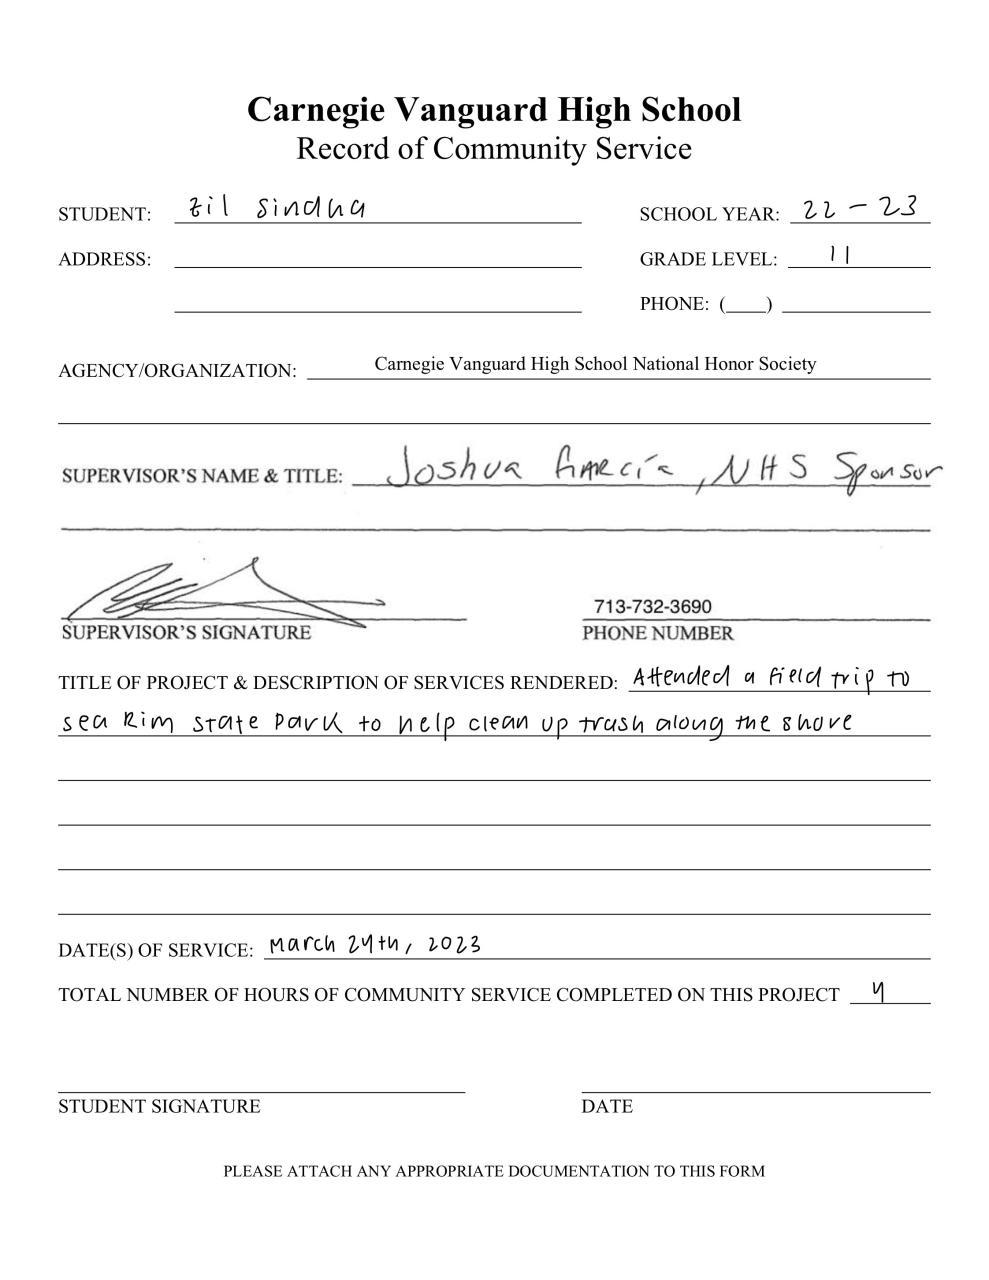 Carnegie Vanguard High School
Record of Community Service
STUDENT: Zil Sindha SCHOOL YEAR: 22 - 23
ADDRESS: GRADE LEVEL: 11
PHONE: (____)
AGENCY/ORGANIZATION: Carnegie Vanguard High School National Honor Society
SUPERVISOR'S NAME & TITLE: Joshua Garcia, NHS Sponsor
713-732-3690
SUPERVISOR'S SIGNATURE PHONE NUMBER
TITLE OF PROJECT & DESCRIPTION OF SERVICES RENDERED: Attended a field trip to
Sea Rim State Park to help clean up trash along the shore
DATE(S) OF SERVICE: March 24th, 2023
TOTAL NUMBER OF HOURS OF COMMUNITY SERVICE COMPLETED ON THIS PROJECT 4
STUDENT SIGNATURE DATE
PLEASE ATTACH ANY APPROPRIATE DOCUMENTATION TO THIS FORM